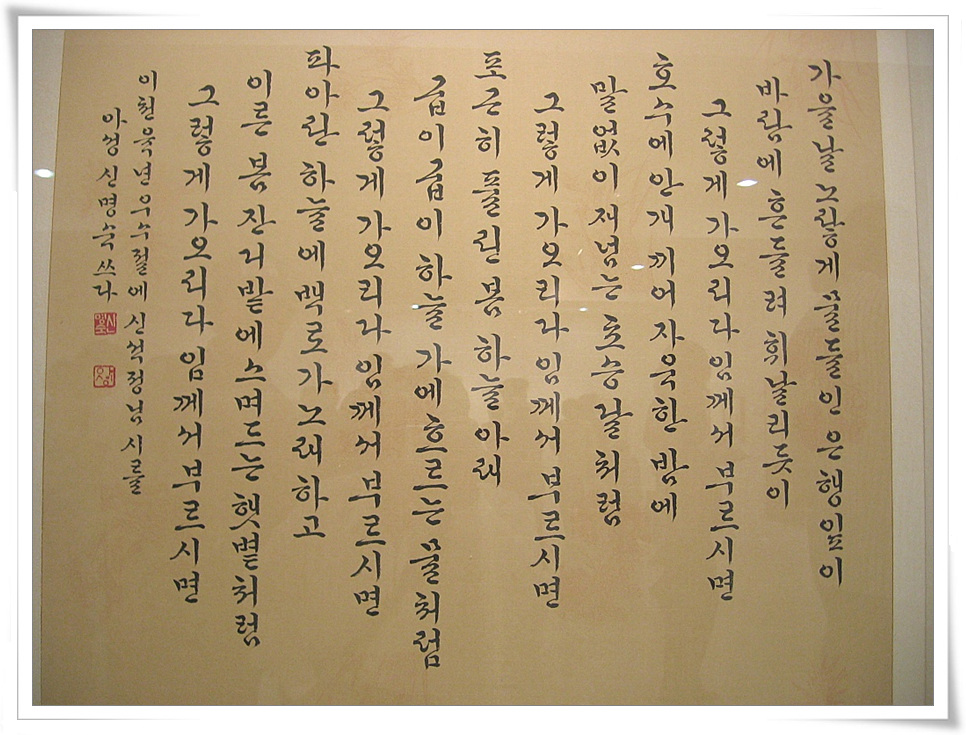 가을날 노랗게 물들인 은행잎이
바람에 흔들려 휘날리듯이
그렇게 가오리다 임께서 부르시면
호수에 안개 끼어 자욱한 밤에
말없이 재넘는 초승달처럼
그렇게 가오리다 임께서 부르시면
포근히 풀린 봄 하늘 아래
굽이굽이 하늘 가에 흐르는 물처럼
그렇게 가오리다 임께서 부르시면
파아란 하늘에 백로가 노래하고
이른 봄 잔디밭에 스며드는 햇볕처럼
그렇게 가오리다 임께서 부르시면
이천육년 우수절에 신석정님 시를
아경 신명숙 쓰다